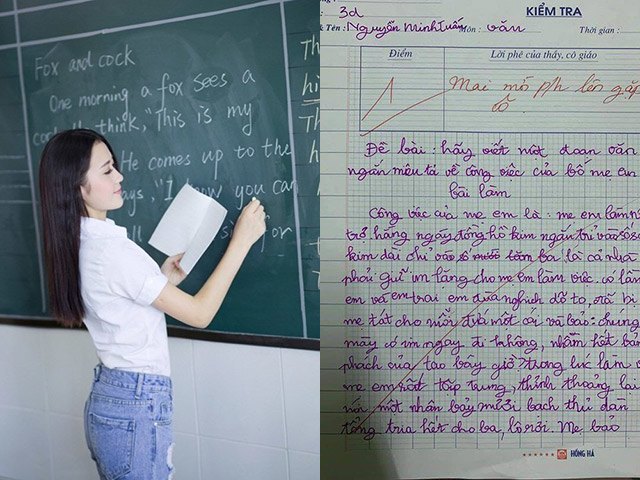 Fox and cock
One morning a fox sees a
cock think, "This is my
He comes up to the
says, "I know you can
for
Th
hi
Th
3d
KIỂM TRA
Tên: Nguyễn Minh Tuấn Môn: Văn Thời gian:
Điểm
Lời phê của thầy, cô giáo
1
Mai mời ph lên gặp
cô
Đề bài: hãy viết một đoạn văn
ngắn miêu tả về công việc của bố mẹ em
bài làm
Công việc của mẹ em là: mẹ em làm ở
trở hàng ngày đồng hồ kim ngắn trỉ vào số
kim dài chỉ vào số ba là cả nhà
phải giữ im lặng cho mẹ em làm việc. có lần
em và em trai em đùa nghịch to, rồi bị
mẹ tát cho mỗi đứa một cái và bảo: chúng
mày có im ngay đi không, nhầm hết bản
phách của tao bây giờ? trong lúc làm
mẹ em rất tập trung, thỉnh thoảng lại
nói một nhân bảy mươi bạch thủ dàn
tổng tria hết cho ba, lô rơi. Mẹ bảo
HỒNG HÀ